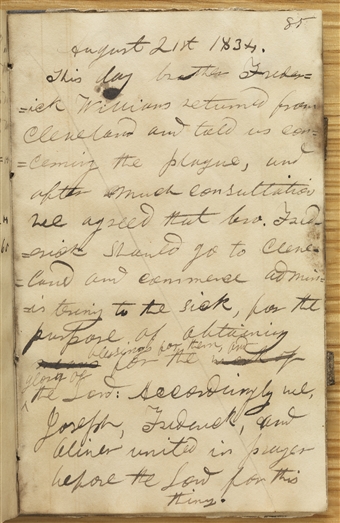 85
August 21st 1834.
This day brother Freder=
=ick Williams returned from
Cleveland and told us con-
=cerning the plague, and
after much consultation
we agreed that bro. Fred
=erick should go to Cleve=
=land and commence admin=
=istering to the sick, for the
purpose of obtaining
blessings for them, and
for the work of
glory of
the Lord: Accordingly we,
Joseph, Frederick, and
Oliver united in prayer
before the Lord for this
thing.